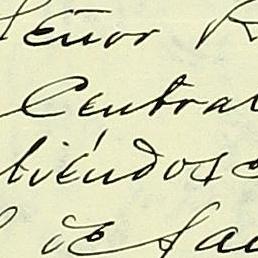 Señor R
Central
biéndose
de Sa